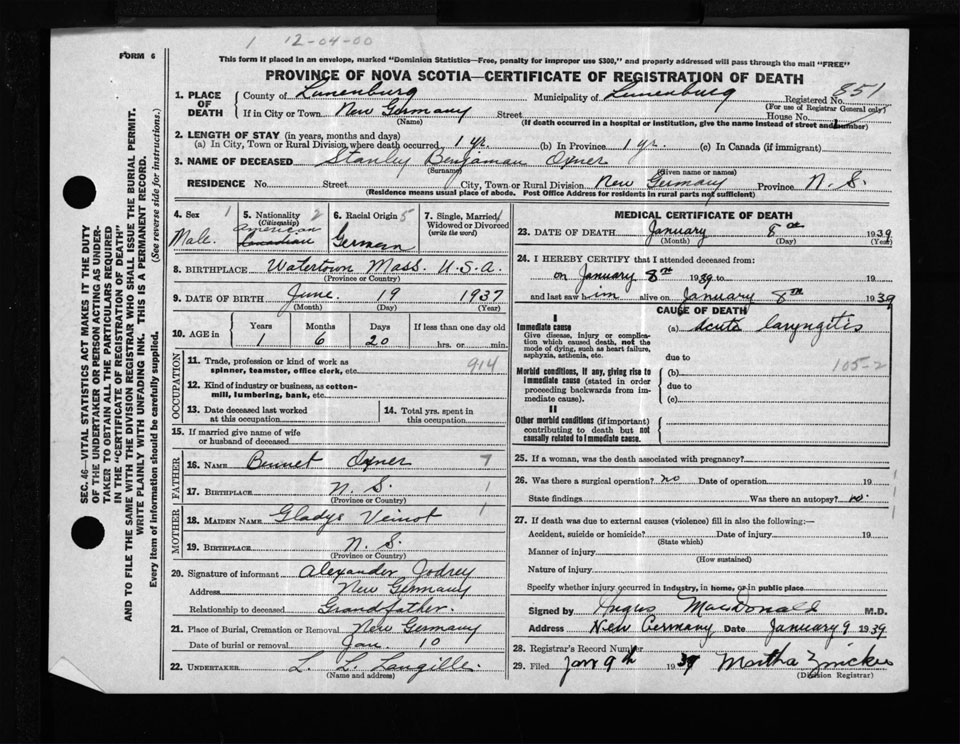 1 12-04-00
FORM 6
This form if placed in an envelope, marked "Dominion Statistics—Free, penalty for improper use $300," and properly addressed will pass through the mail "FREE"
PROVINCE OF NOVA SCOTIA—CERTIFICATE OF REGISTRATION OF DEATH
SEC. 46—VITAL STATISTICS ACT MAKES IT THE DUTY
OF THE UNDERTAKER OR PERSON ACTING AS UNDER-
TAKER TO OBTAIN ALL THE PARTICULARS REQUIRED
IN THE "CERTIFICATE OF REGISTRATION OF DEATH"
AND TO FILE THE SAME WITH THE DIVISION REGISTRAR WHO SHALL ISSUE THE BURIAL PERMIT.
WRITE PLAINLY WITH UNFADING INK. THIS IS A PERMANENT RECORD.
Every item of information should be carefully supplied. (See reverse side for instructions.)
1. PLACE OF DEATH
County of Lunenburg Municipality of Lunenburg Registered No. 851
(For use of Registrar General only)
If in City or Town New Germany Street House No.
(Name) (If death occurred in a hospital or institution, give the name instead of street and number)
2. LENGTH OF STAY (in years, months and days)
(a) In City, Town or Rural Division where death occurred 1 yr. (b) In Province 1 yr. (c) In Canada (if immigrant)
3. NAME OF DECEASED Stanley Benjaman Oxner
(Surname) (Given name or names)
RESIDENCE No. Street City, Town or Rural Division New Germany Province N. S.
(Residence means usual place of abode. Post Office Address for residents in rural parts not sufficient)
4. Sex 1
Male.
5. Nationality 2
(Citizenship)
American
Canadian
6. Racial Origin 5
German
7. Single, Married, Widowed or Divorced
(write the word)
8. BIRTHPLACE Watertown Mass. U.S.A.
(Province or Country)
9. DATE OF BIRTH June 19 1937
(Month) (Day) (Year)
10. AGE IN Years Months Days If less than one day old
1 6 20 hrs. or min.
OCCUPATION
11. Trade, profession or kind of work as
spinner, teamster, office clerk, etc. 914
12. Kind of industry or business, as cotton-
mill, lumbering, bank, etc.
13. Date deceased last worked
at this occupation
14. Total yrs. spent in
this occupation
15. If married give name of wife
or husband of deceased
FATHER
16. NAME Bennet Oxner 7
17. BIRTHPLACE N. S. 1
(Province or Country)
MOTHER
18. MAIDEN NAME Gladys Veinot 1
19. BIRTHPLACE N. S.
(Province or Country)
20. Signature of informant Alexander Jodrey
Address New Germany
Relationship to deceased Grandfather.
21. Place of Burial, Cremation or Removal New Germany
Date of burial or removal Jan. 10
22. UNDERTAKER L. L. Langille.
(Name and address)
MEDICAL CERTIFICATE OF DEATH
23. DATE OF DEATH January 8th 1939
(Month) (Day) (Year)
24. I HEREBY CERTIFY that I attended deceased from:
on January 8th 1939 to 19
and last saw him alive on January 8th 1939
CAUSE OF DEATH
I
Immediate cause
Give disease, injury or complica-
tion which caused death, not the
mode of dying, such as heart failure,
asphyxia, asthenia, etc.
(a) acute laryngitis
due to
Morbid conditions, if any, giving rise to
immediate cause (stated in order
proceeding backwards from im-
mediate cause).
(b) 105-2
due to
(c)
II
Other morbid conditions (if important)
contributing to death but not
causally related to immediate cause.
25. If a woman, was the death associated with pregnancy?
26. Was there a surgical operation? no Date of operation 19
State findings Was there an autopsy? no.
27. If death was due to external causes (violence) fill in also the following:—
Accident, suicide or homicide? Date of injury 19
(State which)
Manner of injury
(How sustained)
Nature of injury
Specify whether injury occurred in industry, in home, or in public place
Signed by Angus MacDonald M.D.
Address New Germany Date January 9 1939
28. Registrar's Record Number
29. Filed Jan 9th 1939 Martha Zinck
(Division Registrar)